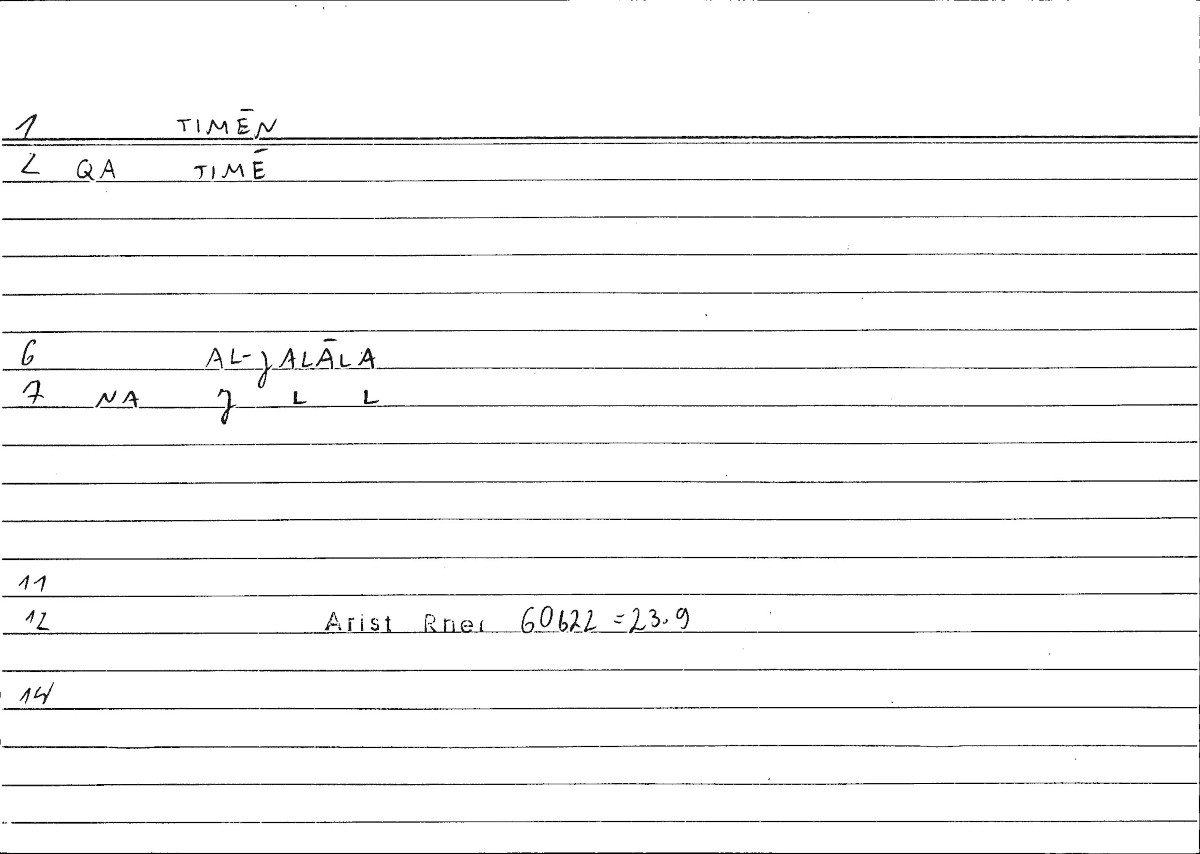 1 TIMĒN
2 QA TIMĒ
6 AL-JALĀLA
7 NA J L L
11
12 Arist Rhet 60b22 =23.9
14